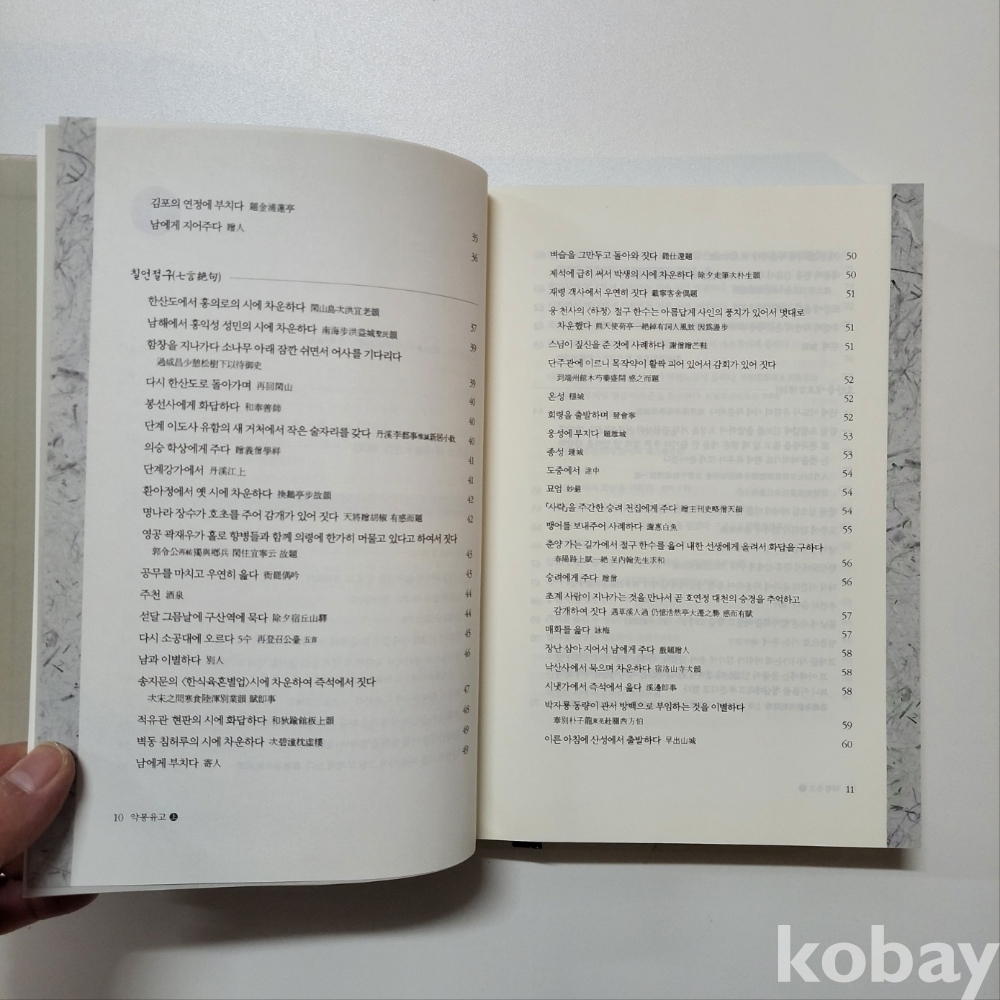 김포의 연정에 부치다 題金浦蓮亭 35
남에게 지어주다 贈人 36
칠언절구(七言絶句)
한산도에서 홍의로의 시에 차운하다 閑山島次洪宜老韻 37
남해에서 홍익성 성민의 시에 차운하다 南海步洪益城聖民韻
함창을 지나다가 소나무 아래 잠깐 쉬면서 어사를 기다리다
過咸昌少憩松樹下以待御史 39
다시 한산도로 돌아가며 再回閑山 40
봉선사에게 화답하다 和奉善師 40
단계 이도사 유함의 새 거처에서 작은 술자리를 갖다 丹溪李都事惟諴新居小歡 40
의승 학상에게 주다 贈義僧學祥 41
단계강가에서 丹溪江上 41
환아정에서 옛 시에 차운하다 換鵝亭步故韻 42
명나라 장수가 호초를 주어 감개가 있어 짓다 天將贈胡椒 有感而題 42
영공 곽재우가 홀로 향병들과 함께 의령에 한가히 머물고 있다고 하여서 짓다
郭令公再祐獨與鄕兵 閑住宜寧云 故題 43
공무를 마치고 우연히 읊다 衙罷偶吟 43
주천 酒泉 44
섣달 그믐날에 구산역에 묵다 除夕宿丘山驛 44
다시 소공대에 오르다 5수 再登召公臺 五首 45
남과 이별하다 別人 46
송지문의 〈한식육혼별업〉시에 차운하여 즉석에서 짓다
次宋之問寒食陸渾別業韻 賦卽事 47
적유관 현판의 시에 화답하다 和狄踰館板上韻 48
벽동 침허루의 시에 차운하다 次碧潼枕虛樓 49
남에게 부치다 寄人 49
10 약봉유고 上
벼슬을 그만두고 돌아와 짓다 罷仕還題 50
제석에 급히 써서 박생의 시에 차운하다 除夕走筆次朴生韻 50
재령 객사에서 우연히 짓다 載寧客舍偶題 51
웅 천사의 〈하정〉 절구 한수는 아름답게 사인의 풍치가 있어서 멋대로
차운했다 熊天使荷亭一絶綽有詞人風致 因爲漫步 51
스님이 짚신을 준 것에 사례하다 謝僧贈芒鞋 51
단주관에 이르니 목작약이 활짝 피어 있어서 감회가 있어 짓다
到端州館木芍藥盛開 感之而題 52
온성 穩城 52
회령을 출발하며 發會寧 52
웅성에 부치다 題雄城 53
종성 鍾城 53
도중에서 途中 54
묘엄 妙嚴 54
『사략』을 주간한 승려 천집에게 주다 54
뱅어를 보내주어 사례하다 謝惠白魚 55
춘양 가는 길가에서 절구 한수를 읊어 내한 선생에게 올려서 화답을 구하다
春陽路上賦一絶 呈內翰先生求和 56
승려에게 주다 贈僧 56
초계 사람이 지나가는 것을 만나서 곧 호연정 대천의 승경을 추억하고
감개하여 짓다 遇草溪人過 仍憶浩然亭大遷之勝 感而有賦 57
매화를 읊다 詠梅 57
장난 삼아 지어서 남에게 주다 戲題贈人 58
낙산사에서 묵으며 차운하다 宿洛山寺次韻 58
시냇가에서 즉석에서 읊다 溪邊卽事 58
박자룡 동량이 관서 방백으로 부임하는 것을 이별하다
奉別朴子龍東亮赴關西方伯 59
이른 아침에 산성에서 출발하다 早出山城 60
11
kobay